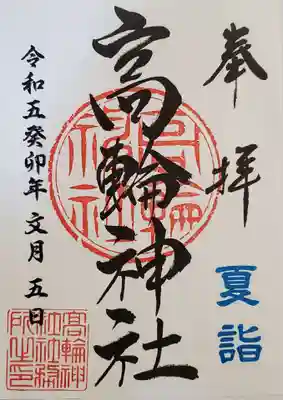 奉拝
夏詣
高輪神社
高輪神社
令和五癸卯年 文月 五日
高輪神社社務所之印